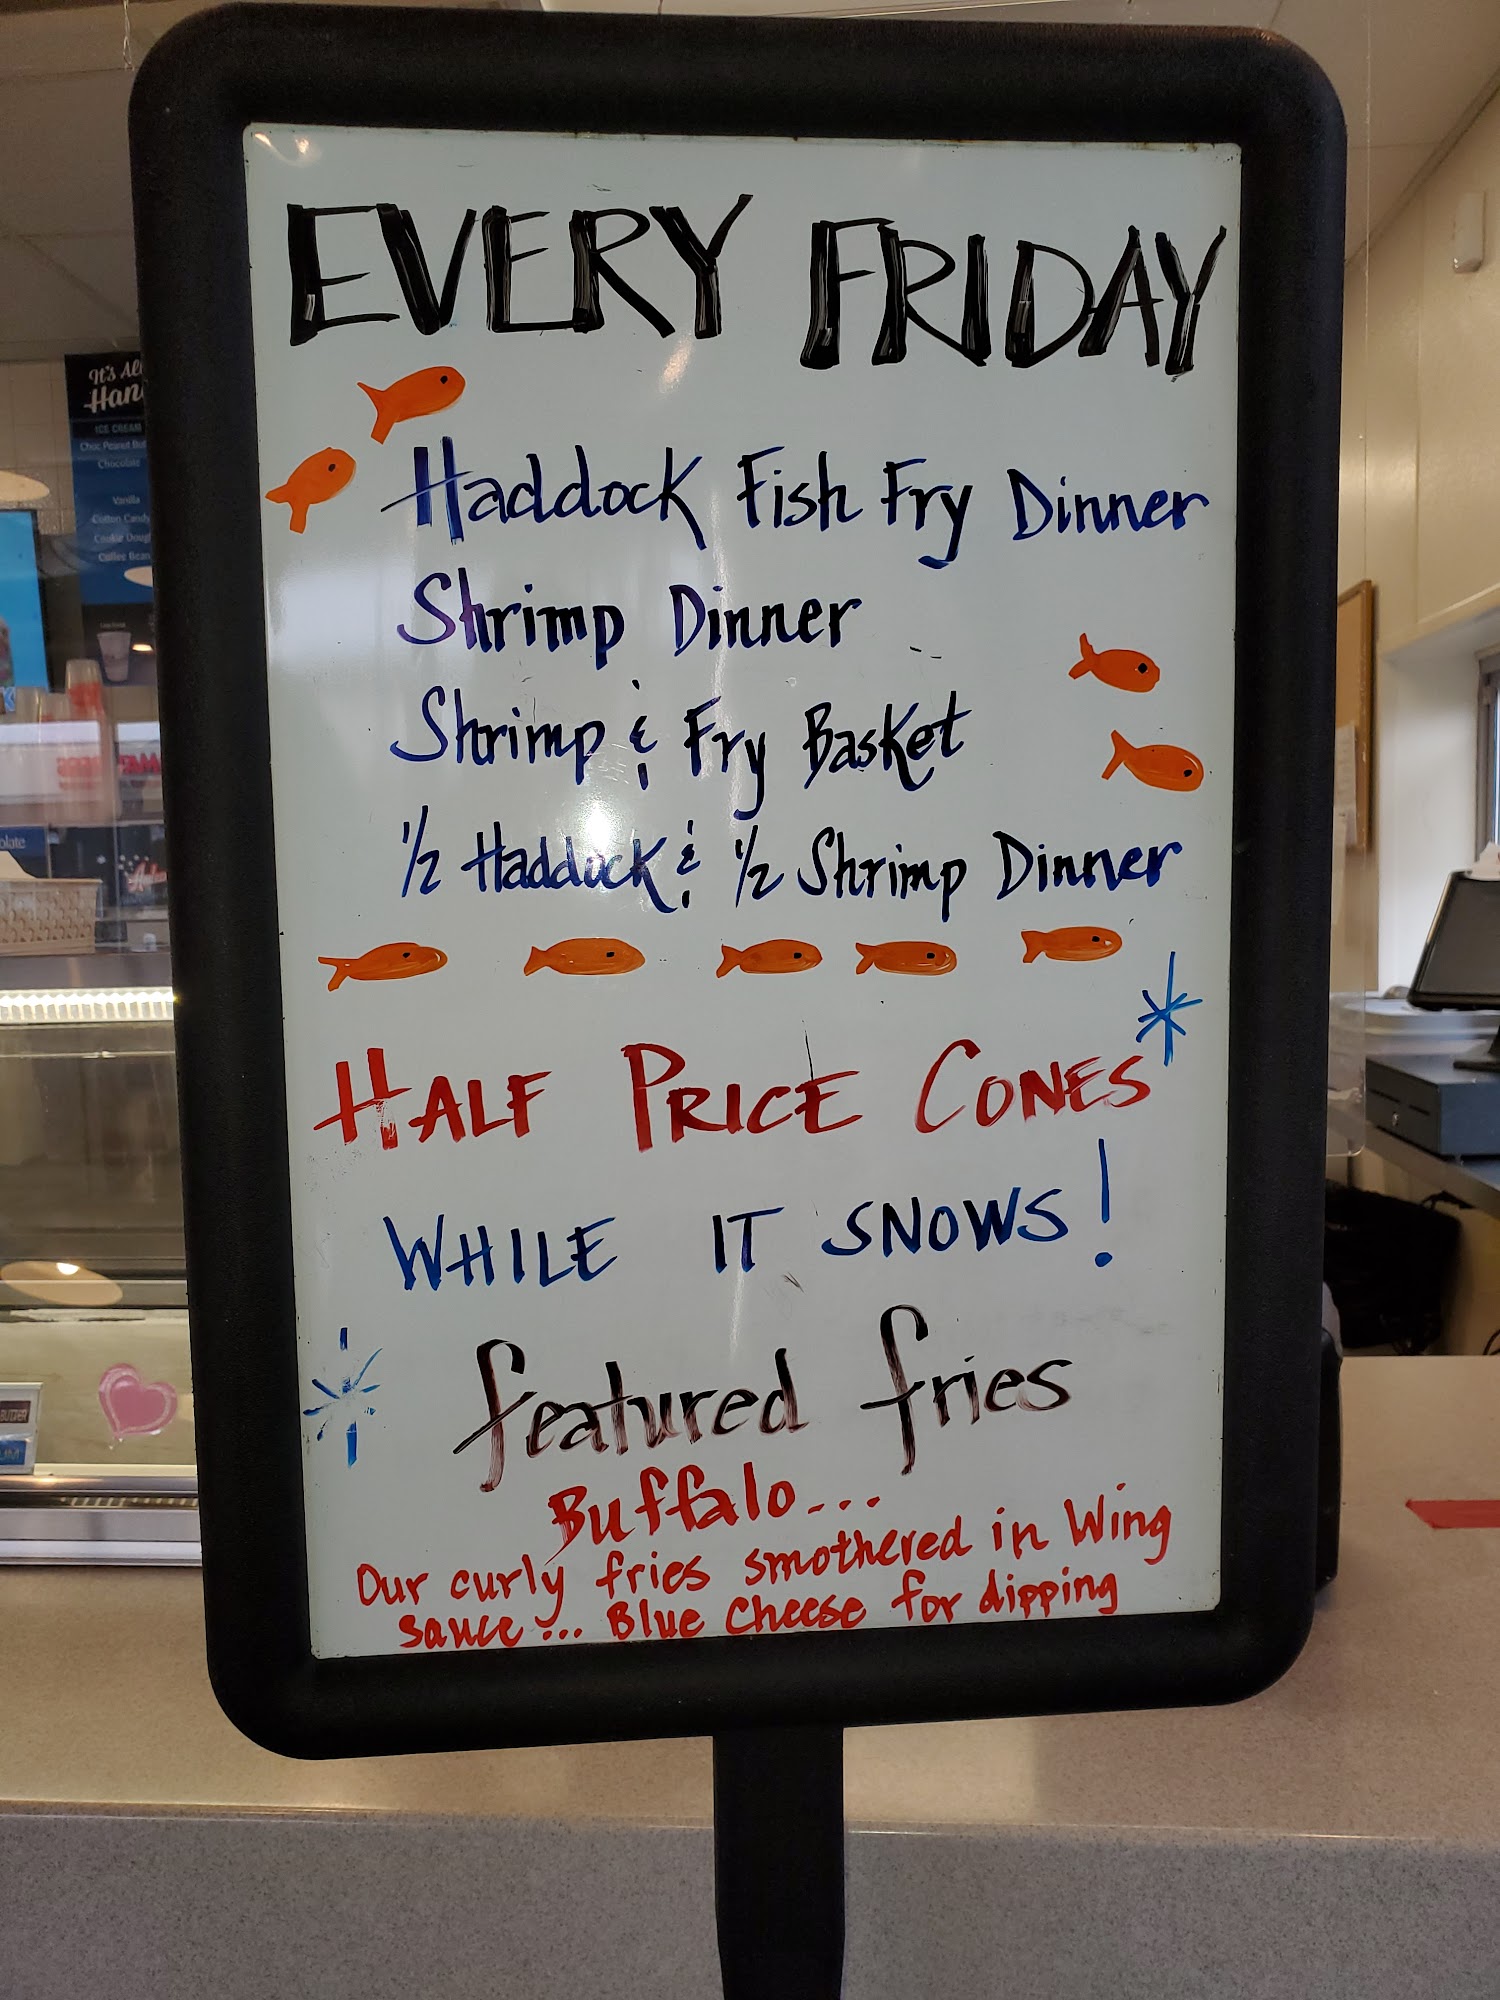 EVERY FRIDAY
Haddock Fish Fry Dinner
Shrimp Dinner
Shrimp & Fry Basket
1/2 Haddock & 1/2 Shrimp Dinner
HALF PRICE CONES
WHILE IT SNOWS!
featured fries
Buffalo...
Our curly fries smothered in Wing
sauce... Blue Cheese for dipping
It's All
Han
ICE CREAM
Choc Peanut But
Chocolate
Vanilla
Cotton Candy
Cookie Dough
Coffee Bean
olate